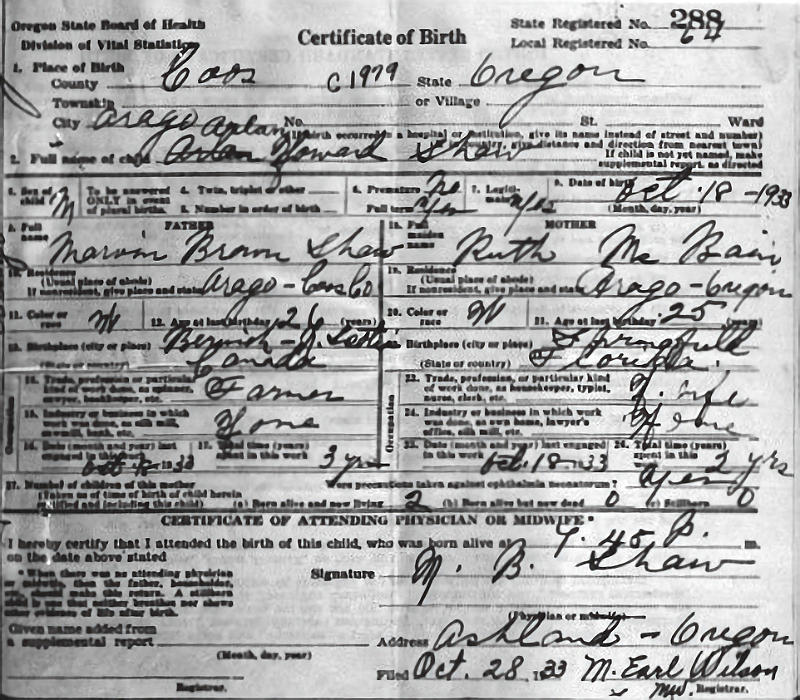 Oregon State Board of Health
Division of Vital Statistics
Certificate of Birth
State Registered No. 288
Local Registered No. 64
1. Place of Birth
County Coos C 1979 State Oregon
Township or Village
City Arago No. St. Ward
(If birth occurred in a hospital or institution, give its name instead of street and number)
2. Full name of child Howard Shaw
If child is not yet named, make supplemental report, as directed
3. Sex of child M To be answered ONLY in event of plural births 4. Twin, triplet, other 6. Premature No 7. Legitimate? Yes 8. Date of birth Oct. 18 - 1933
5. Number in order of birth Full term Yes (Month, day, year)
9. Full name FATHER Marvin Brown Shaw
18. Full maiden name MOTHER Ruth Mc Bain
10. Residence (Usual place of abode) If nonresident, give place and state Arago - Coos Co
19. Residence (Usual place of abode) If nonresident, give place and state Arago - Oregon
11. Color or race W 12. Age at last birthday 26 (years)
20. Color or race W 21. Age at last birthday 25 (years)
13. Birthplace (city or place)
(State or country) Canada
22. Birthplace (city or place) Springfield
(State or country) Florida
14. Trade, profession, or particular kind of work done, as spinner, sawyer, bookkeeper, etc. Farmer
23. Trade, profession, or particular kind of work done, as housekeeper, typist, nurse, clerk, etc. H. wife
15. Industry or business in which work was done, as silk mill, sawmill, bank, etc. Home
24. Industry or business in which work was done, as own home, lawyer's office, silk mill, etc. Home
16. Date (month and year) last engaged in this work 1933 17. Total time (years) spent in this work 3 yrs
25. Date (month and year) last engaged in this work Oct. 18 - 33 26. Total time (years) spent in this work 2 yrs
27. Number of children of this mother Were precautions taken against ophthalmia neonatorum? Yes
(Taken as of time of birth of child herein certified and including this child) (a) Born alive and now living 2 (b) Born alive but now dead 0 (c) Stillborn 0
CERTIFICATE OF ATTENDING PHYSICIAN OR MIDWIFE*
I hereby certify that I attended the birth of this child, who was born alive at 45 P. m.
on the date above stated
* When there was no attending physician or midwife, then the father, householder, etc., should make this return. A stillborn child is one that neither breathes nor shows other evidence of life after birth.
Signature M. B. Shaw
(Physician or midwife)
Given name added from
a supplemental report
(Month, day, year)
Registrar.
Address Ashland - Oregon
Filed Oct. 28, 1933 M. Earl Wilson
Registrar.